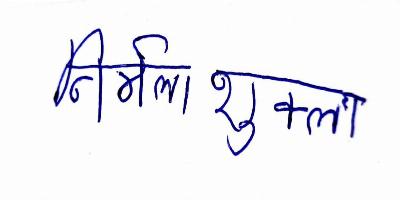 निर्मला शुक्ला